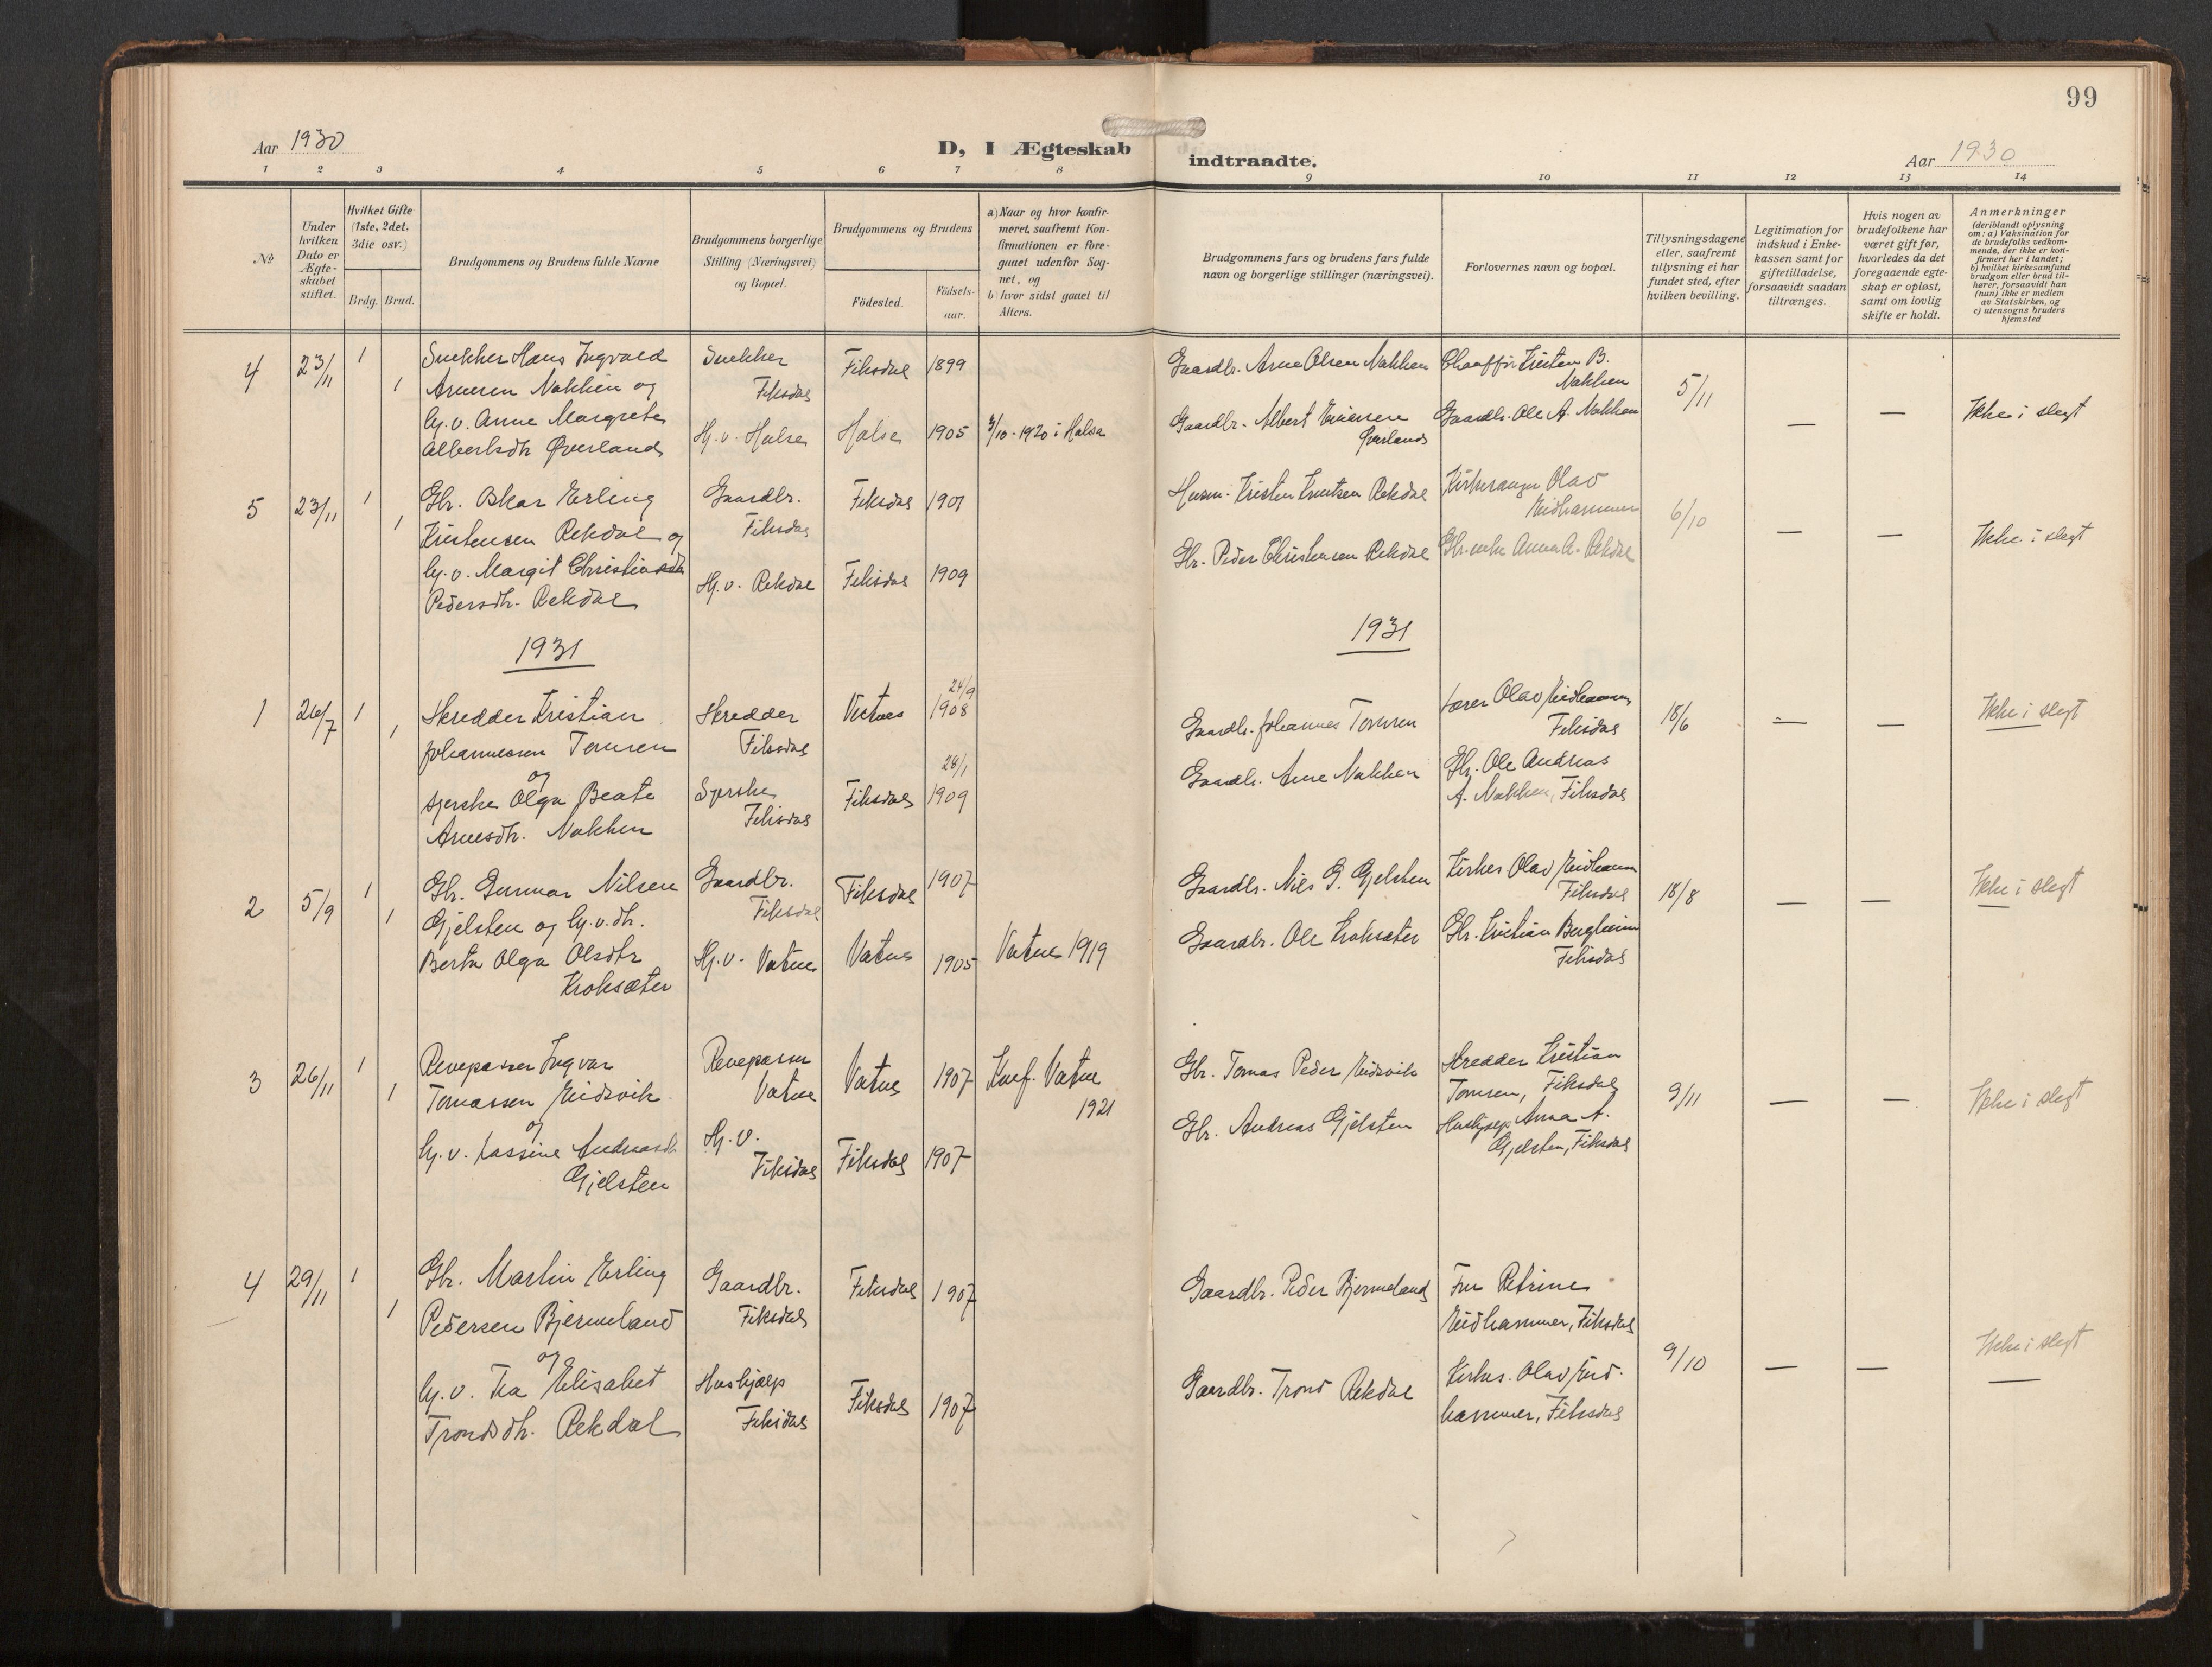 99
Aar 1930
D, I Ægteskab indtraadte.
Aar 1930
1 2 3 4 5 6 7 8 9 10 11 12 13 14
№
Under hvilken Dato er Ægte-skabet stiftet.
Hvilket Gifte (1ste, 2det, 3die osv.)
Brdg. Brud.
Brudgommens og Brudens fulde Navne
Brudgommens borgerlige Stilling (Næringsvei) og Bopæl.
Brudgommens og Brudens
Födested.
Födsels-aar.
a) Naar og hvor konfir-
meret, saafremt Kon-
firmationen er fore-
gaaet udenfor Sog-
net, og
b) hvor sidst gaaet til
Alters.
Brudgommens fars og brudens fars fulde
navn og borgerlige stillinger (næringsvei).
Forlovernes navn og bopæl.
Tillysningsdagene
eller, saafremt
tillysning ei har
fundet sted, efter
hvilken bevilling.
Legitimation for
indskud i Enke-
kassen samt for
giftetilladelse,
forsaavidt saadan
tiltrænges.
Hvis nogen av
brudefolkene har
været gift før,
hvorledes da det
foregaaende egte-
skap er opløst,
samt om lovlig
skifte er holdt.
Anmerkninger
(deriblandt oplysning
om: a) Vaksination for
de brudefolks vedkom-
mende, der ikke er kon-
firmert her i landet;
b) hvilket kirkesamfund
brudgom eller brud til-
hører, forsaavidt han
(hun) ikke er medlem
av Statskirken, og
c) utensogns bruders
hjemsted
4 23/11 1 Snekker Hans Ingvald Snekker Fiksdal 1899
1 Arnesen Nakken og Fiksdal
Hj.v. Anne Margrete
Albertsdtr Øverland Hj.v. Halse Halse 1905 3/10-1920 i Halsa
Gaardbr. Arne Olsen Nakken Chauffør Kristen B.
Nakken
5/11
Gaardbr. Albert Øverland Gaardbr. Ole A. Nakken — — Ikke i slegt
5 23/11 1 Gbr. Oskar Erling Gaardbr. Fiksdal 1901
1 Kristensen Rekdal og Fiksdal
Hj.v. Margit
Pedersdtr. Rekdal Hj.v. Rekdal Fiksdal 1909
Husm. Kristen Knutsen Rekdal Kirkesanger Olav
Eidhammer
6/10 — — Ikke i slegt
Gbr. Peder Christensen Rekdal Gbr.enke Anna A. Rekdal
1931
1931
1 26/7 1 Skredder Kristian Skredder Vatne 24/9 1908
1 Johannessen Tomren Fiksdal
og
syerske Olga Beate Syerske Fiksdal 28/1 1909
Arnesdtr. Nakken Fiksdal
Gaardbr. Johannes Tomren Lærer Olav Eidhammer
Fiksdal
18/6 — — Ikke i slegt
Gaardbr. Arne Nakken Gbr. Ole Andreas
A. Nakken, Fiksdal
2 5/9 1 Gbr. Gunnar Nilsen Gaardbr. Fiksdal 1907
1 Gjelsten og hj.v.dtr. Fiksdal
Berta Olga Olsdtr Hj.v. Vatne Vatne 1905 Vatne 1919
Kroksæter
Gaardbr. Nils G. Gjelsten Kirkes. Olav Eidhammer
Fiksdal
18/8 — — Ikke i slegt
Gaardbr. Ole Kroksæter Gbr. Kristian Bergheim
Fiksdal
3 26/11 1 Revepasser Ingvar Revepasser Vatne 1907 Konf. Vatne
1 Tomassen Eidsvik Vatne 1921
og
hj.v. Lassine Andreasdtr Hj.v.
Gjelsten Fiksdal Fiksdal 1907
Gbr. Tomas Peder Eidsvik Skredder Kristian
Tomren, Fiksdal
9/11 — — Ikke i slegt
Gbr. Andreas Gjelsten Hushjelp Anna A.
Gjelsten, Fiksdal
4 29/11 1 Gbr. Martin Erling Gaardbr. Fiksdal 1907
1 Pedersen Bjermeland Fiksdal
og
hj.v. Elisabet Hushjælp
Trondsdtr. Rekdal Fiksdal Fiksdal 1907
Gaardbr. Peder Bjermeland Fru Petrine
Eidhammer, Fiksdal
9/10 — — Ikke i slegt
Gaardbr. Trond Rekdal Kirkes. Olav Eid-
hammer, Fiksdal